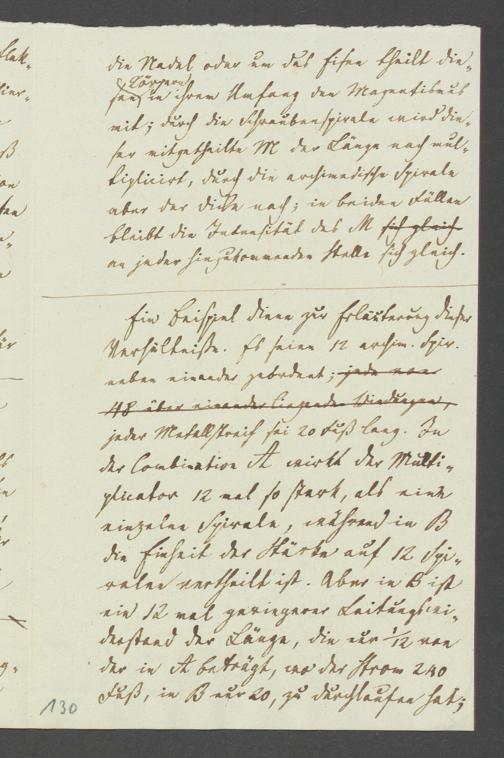 die Nadel oder um das Eisen theilt die-
Körpern
sen in ihrem Umfang den Magnetismus
mit; durch die Schraubenspirale wird die-
ser mitgetheilte M der Länge nach mul-
tiplicirt, durch die archimedische Spirale
aber der Dicke nach; in beiden Fällen
bleibt die Intensität des M sich gleich
an jeder hinzukommenden Stelle sich gleich.
Ein Beispiel diene zur Erläuterung dieser
Verhältniße. Es seien 12 archim. Spir.
neben einander geordnet; jede von
48 über einander liegenden Windungen,
jeder Metallstreif sei 20 Fuß lang. In
der Combination A wirkt der Multi-
plicator 12 mal so stark, als eine
einzelne Spirale, während in B
die Einheit der Stärke auf 12 Spi-
ralen vertheilt ist. Aber in B ist
ein 12 mal geringerer Leitungswi-
derstand der Länge, die nur 1/12 von
der in A beträgt, wo der Strom 240
Fuß, in B nur 20, zu durchlaufen hat;
130